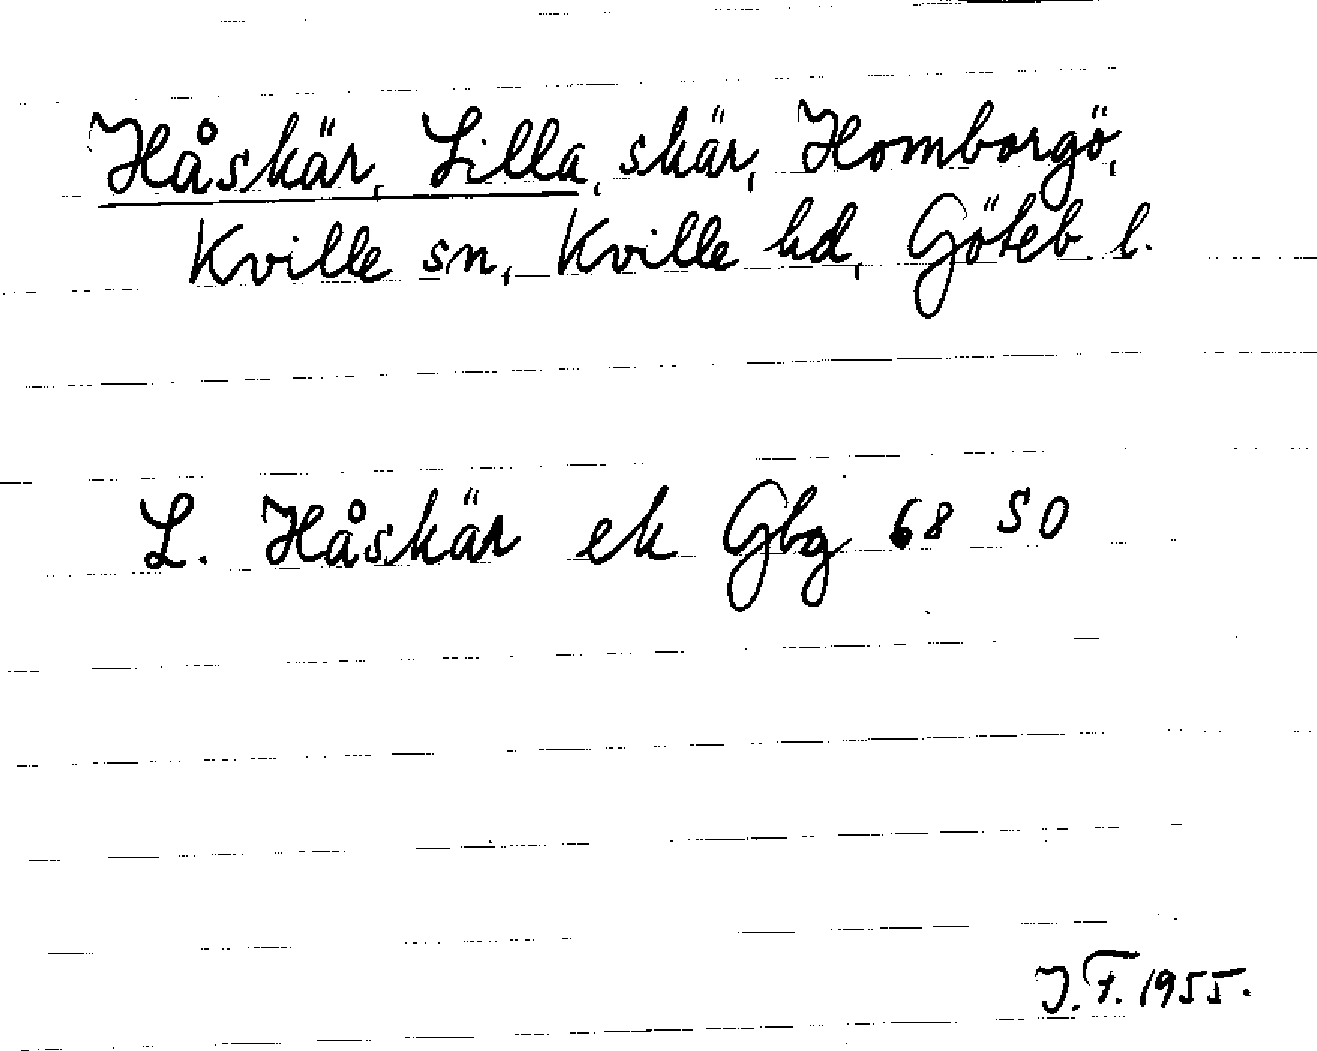 Håskär, Lilla, skär, Homborgö,
Kville sn, Kville hd, Göteb l.
L. Håskär ek Gbg 68 SO
J.F. 1955.